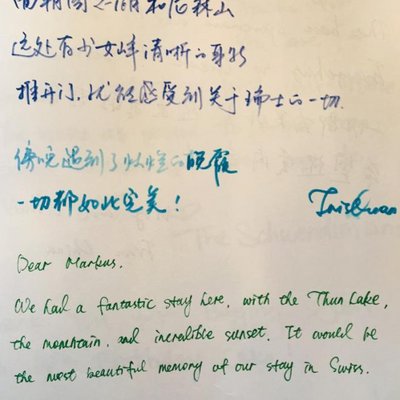 和尼森山
远处有少女峰清晰的身影
推开门,就能感受到关于瑞士的一切.
傍晚遇到了的晚霞
一切都如此完美!
Dear Markus.
We had a fantastic stay here, with the Thun Lake,
the mountain, and incredible sunset. It would be
the most beautiful memory of our stay in Swiss.